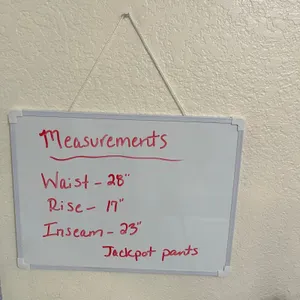 Measurements
Waist - 28"
Rise - 17"
Inseam - 23"
Jackpot pants